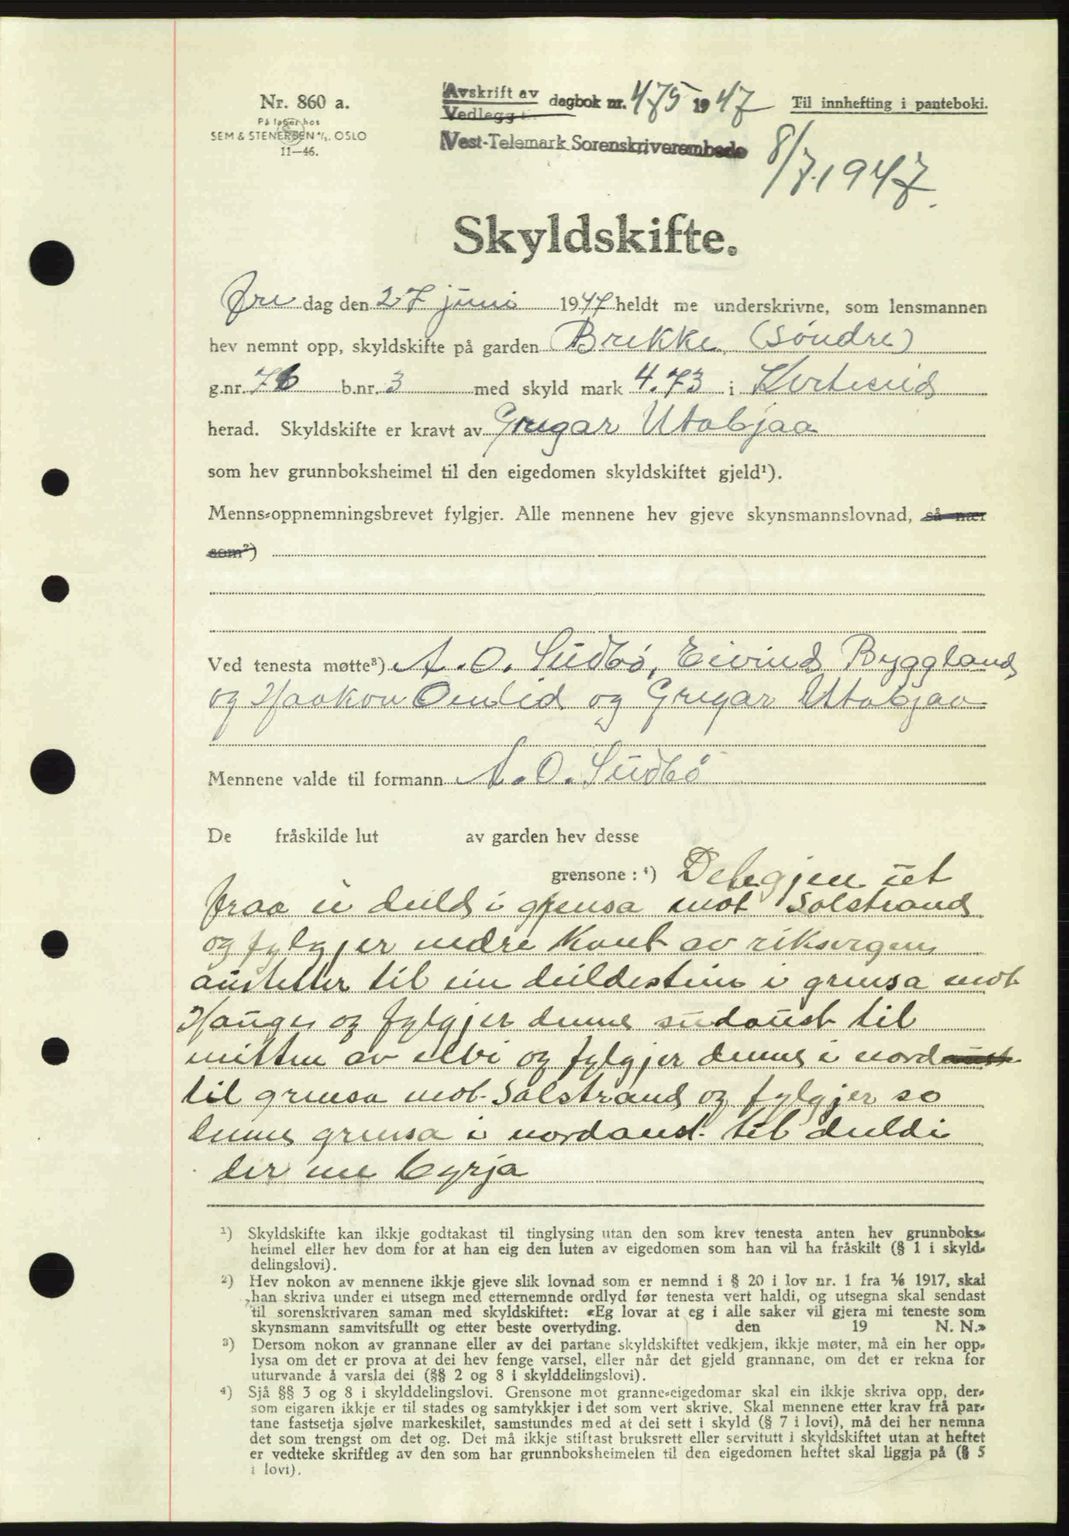 Nr. 860 a.
På lager hos
SEM & STENERSEN A/S. OSLO
11—46.
Avskrift av
Vedlegg
dagbok nr. 475 1947
Til innhefting i panteboki.
Vest-Telemark Sorenskriverembede
8/7.1947.
Skyldskifte.
Fre dag den 27 juni 1947 heldt me underskrivne, som lensmannen
hev nemnt opp, skyldskifte på garden Brekke (Søndre)
g.nr. 76 b.nr. 3 med skyld mark 4.73 i Kviteseid
herad. Skyldskifte er kravt av Gregar Utabjaa
som hev grunnboksheimel til den eigedomen skyldskiftet gjeld¹).
Menns-oppnemningsbrevet fylgjer. Alle mennene hev gjeve skynsmannslovnad, så nær
som²)
Ved tenesta møtte³) A. O. Sudbø, Eivind Byggland
og Haakon Omlid og Gregar Utabjaa
Mennene valde til formann A. O. Sudbø
De fråskilde lut av garden hev desse
grensone: ⁴) Delegjen ut
fraa ei deild i grensa mot Solstrand
og fylgjer nedre kant av riksvegen
austetter til ein deildestein i grensa mot
Haugen og fylgjer denne sudaust til
mitten av elvi og fylgjer denne i nordaust
til grensa mot Solstrand og fylgjer so
denne grensa i nordaust til deildi
der me byrja
¹) Skyldskifte kan ikkje godtakast til tinglysing utan den som krev tenesta anten hev grunnboks-
heimel eller hev dom for at han eig den luten av eigedomen som han vil ha fråskilt (§ 1 i skyld-
delingslovi).
²) Hev nokon av mennene ikkje gjeve slik lovnad som er nemnd i § 20 i lov nr. 1 fra 1/6 1917, skal
han skriva under ei utsegn med etternemnde ordlyd før tenesta vert haldi, og utsegna skal sendast
til sorenskrivaren saman med skyldskiftet: «Eg lovar at eg i alle saker vil gjera mi teneste som
skynsmann samvitsfullt og etter beste overtyding. den 19 N. N.»
³) Dersom nokon av grannane eller av dei partane skyldskiftet vedkjem, ikkje møter, må ein her opp-
lysa om det er prova at dei hev fenge varsel, eller når det gjeld grannane, om det er rekna for
uturvande å varsla dei (§§ 2 og 8 i skylddelingslovi).
⁴) Sjå §§ 3 og 8 i skylddelingslovi. Grensone mot granne-eigedomar skal ein ikkje skriva opp, der-
som eigaren ikkje er til stades og samtykkjer i det som vert skrive. Skal mennene etter krav frå par-
tane fastsetja sjølve markeskilet, samstundes med at dei sett i skyld (§ 7 i lovi), må dei her nemna
det som trengst om det og. Det må ikkje stiftast bruksrett eller servitutt i skyldskiftet utan at heftet
er vedteke skriftleg av den som har grunnboksheimelen til den eigedomen heftet skal liggja på (§ 5
i lovi).